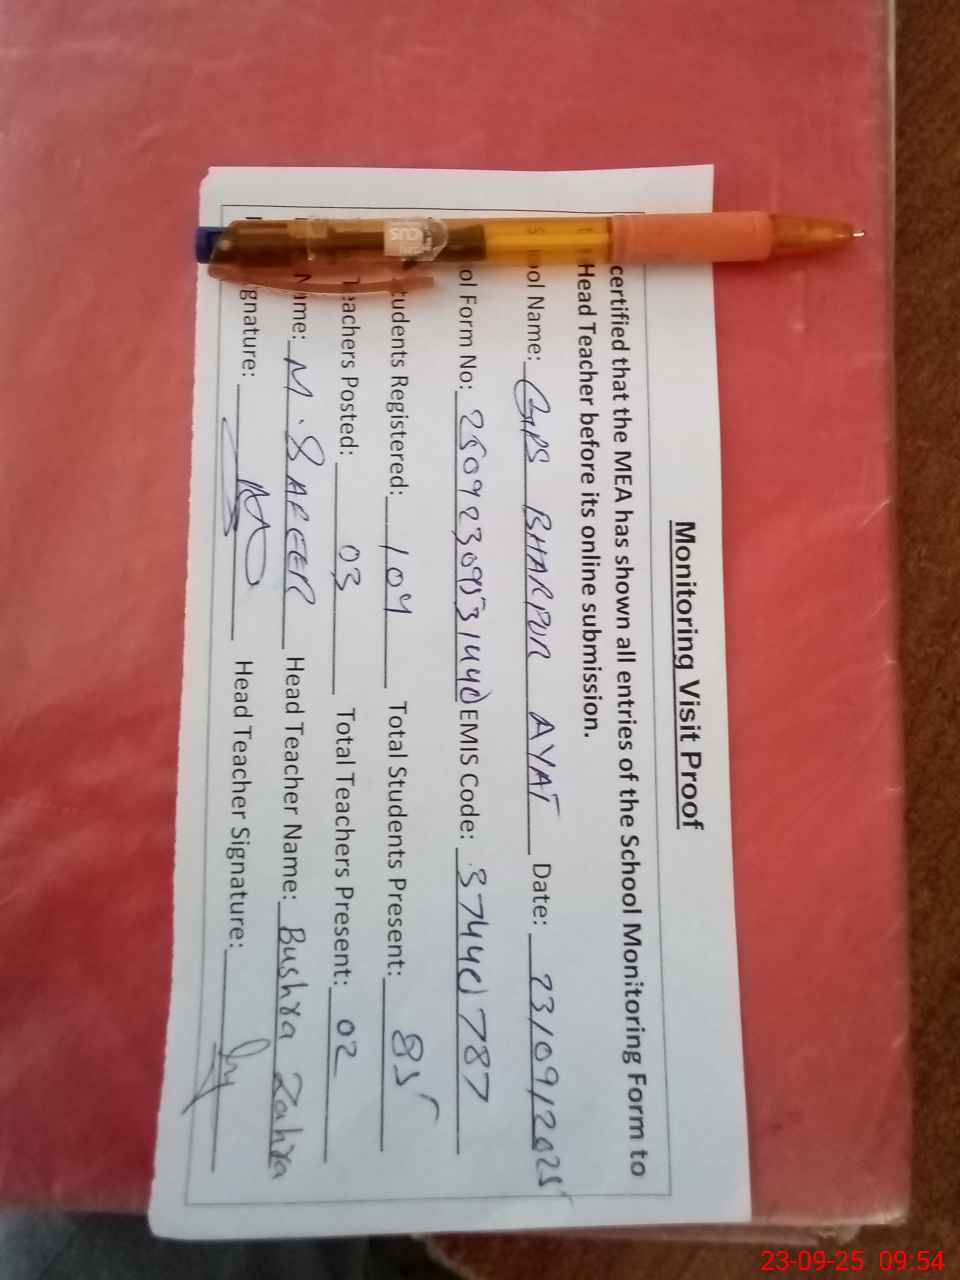 Monitoring Visit Proof
certified that the MEA has shown all entries of the School Monitoring Form to
Head Teacher before its online submission.
ool Name: GPS BHARPUR AYAT Date: 23/09/2025
ol Form No: EMIS Code:
tudents Registered: 104 Total Students Present: 85
eachers Posted: 03 Total Teachers Present: 02
Name: M. SAFEER Head Teacher Name: Bushra Zahra
gnature: Head Teacher Signature:
23-09-25 09:54